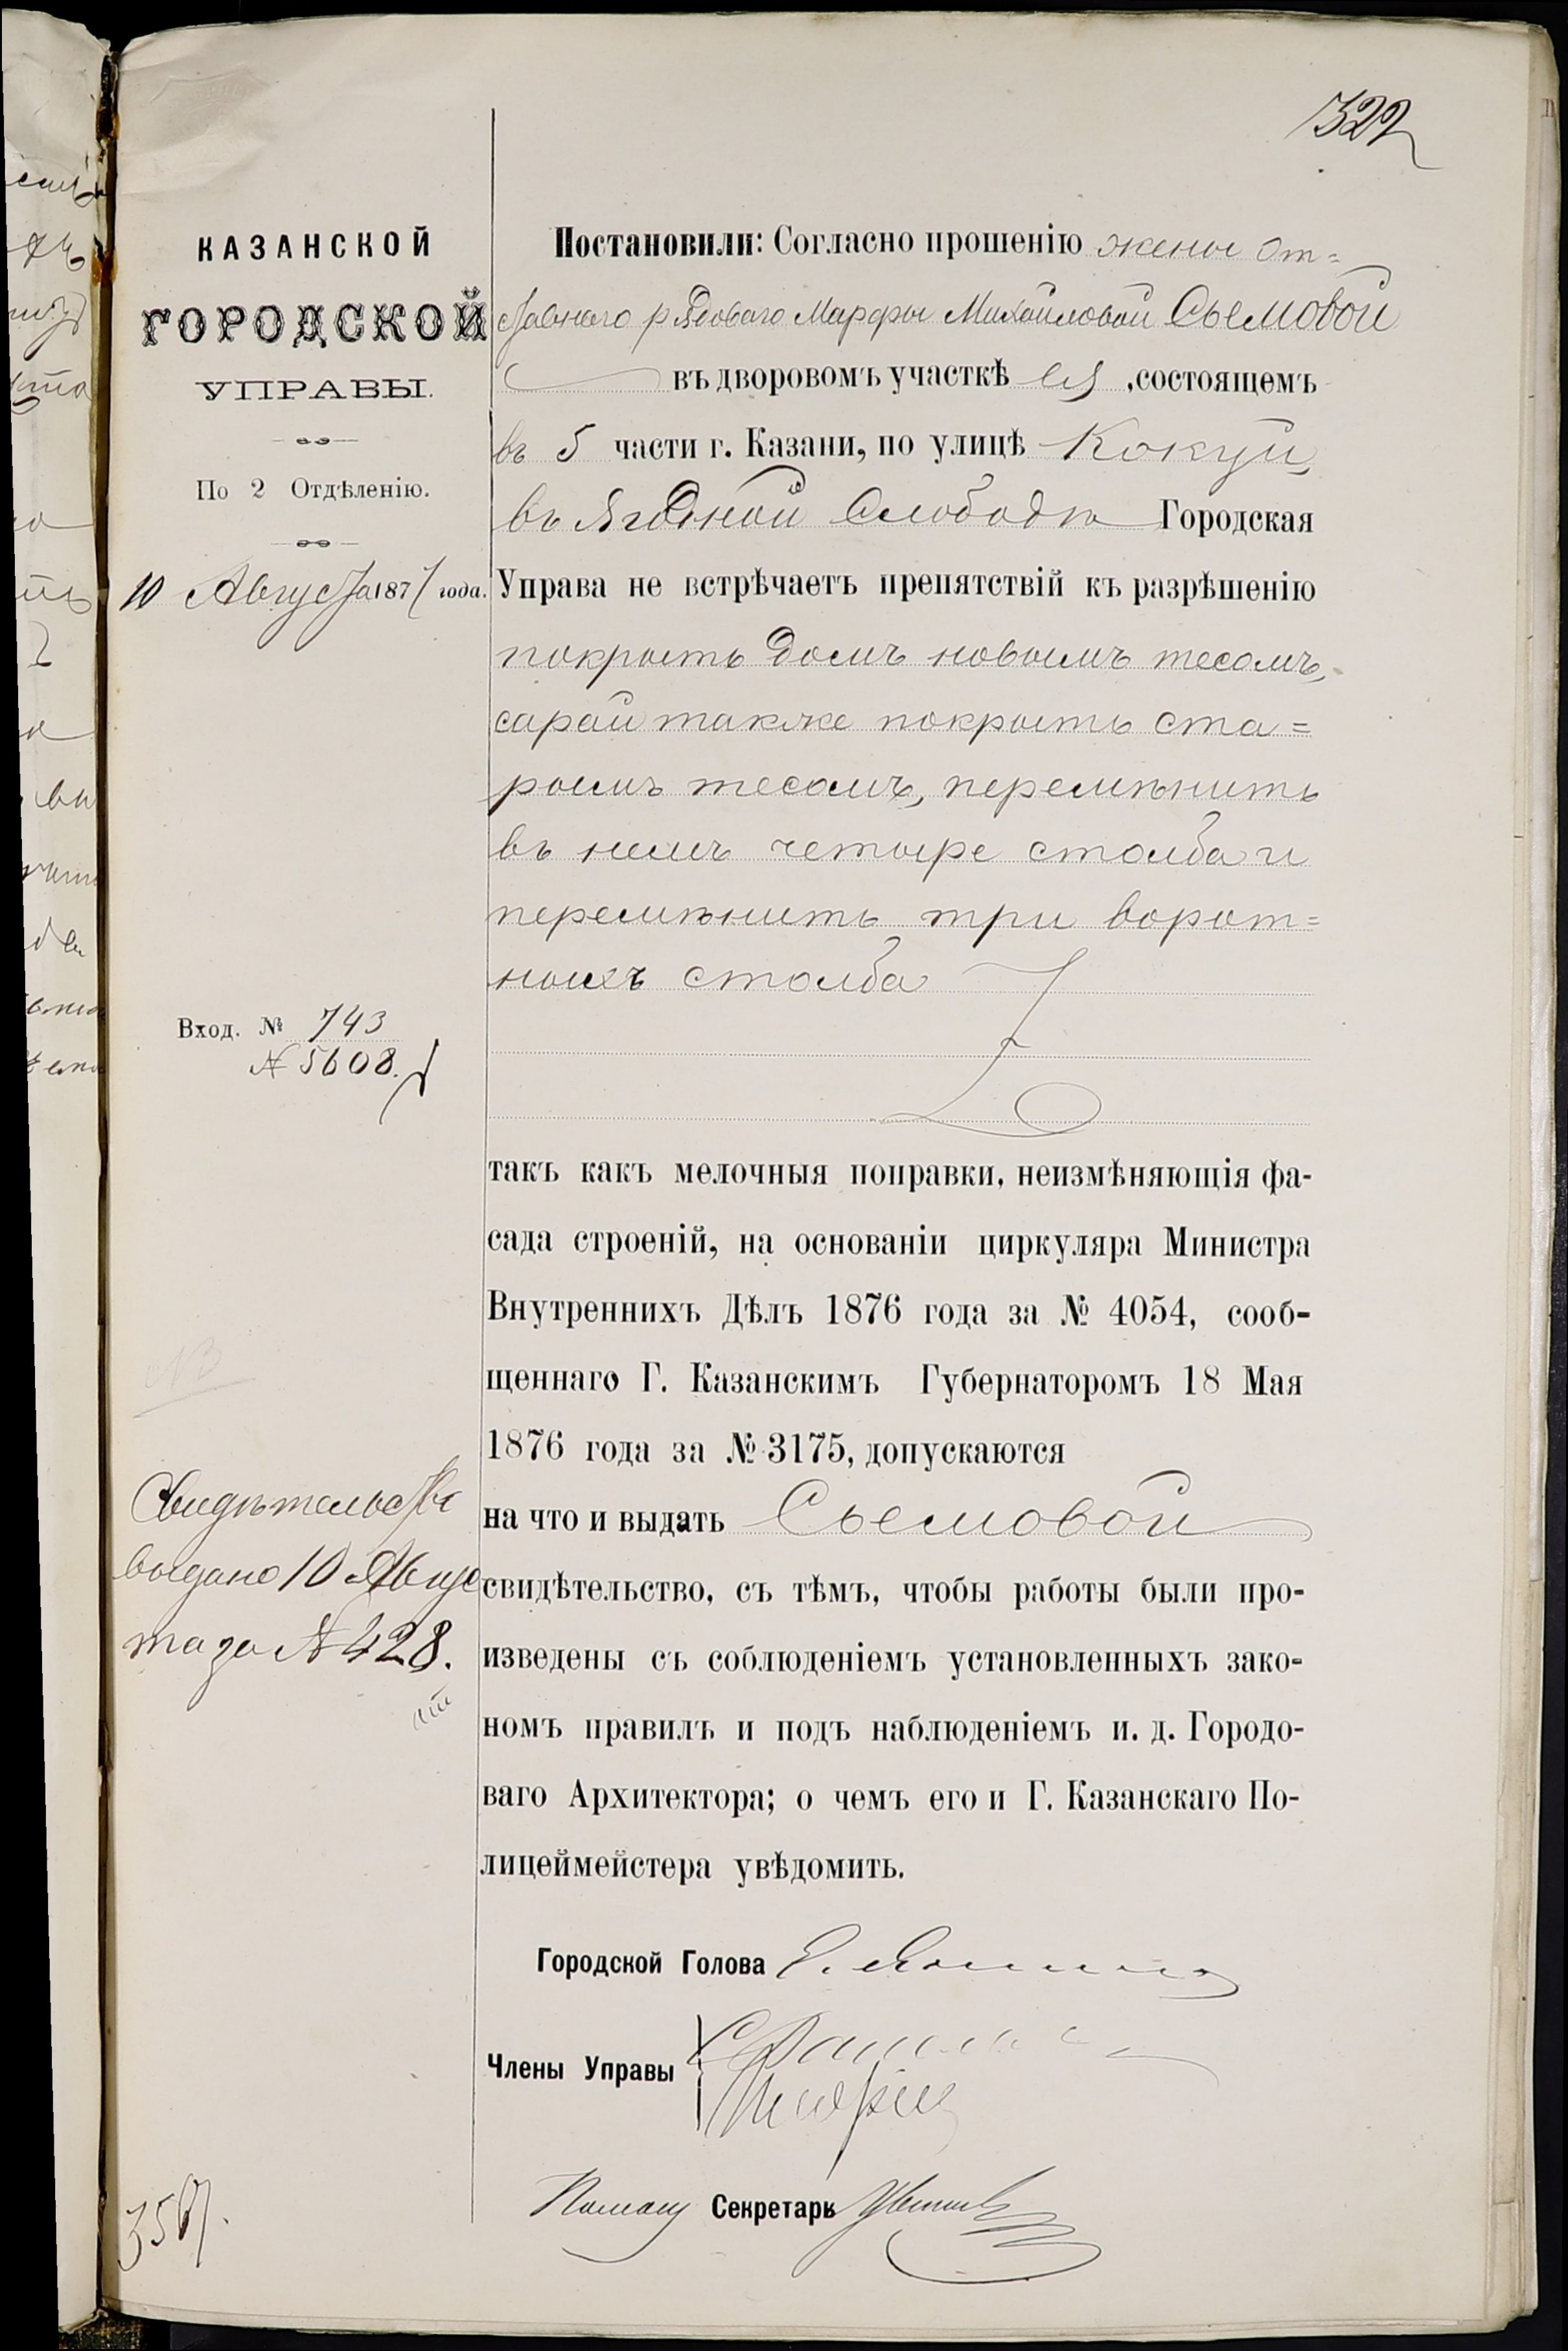 322
КАЗАНСКОЙ
ГОРОДСКОЙ
УПРАВЫ.
По 2 Отдѣленію.
10 Августа 1877 года.
Вход. № 743
№ 5608.
Свидѣтельство
выдано 10 Авгус
та за № 428.
Постановили: Согласно прошенію жены от=
ставнаго рядоваго Марфы Михайловой Сьемовой
въ дворовомъ участкѣ ея, состоящемъ
въ 5 части г. Казани, по улицѣ Кокуй,
въ Ягодной Слободѣ Городская
Управа не встрѣчаетъ препятствій къ разрѣшенію
покрыть домъ новымъ тесомъ,
сарай также покрыть ста=
рымъ тесомъ, перемѣнить
въ немъ четыре столба и
перемѣнить три ворот=
ныхъ столба
такъ какъ мелочныя поправки, неизмѣняющія фа-
сада строеній, на основаніи циркуляра Министра
Внутреннихъ Дѣлъ 1876 года за № 4054, сооб-
щеннаго Г. Казанскимъ Губернаторомъ 18 Мая
1876 года за № 3175, допускаются
на что и выдать Сьемовой
свидѣтельство, съ тѣмъ, чтобы работы были про-
изведены съ соблюденіемъ установленныхъ зако-
номъ правилъ и подъ наблюденіемъ и. д. Городо-
ваго Архитектора; о чемъ его и Г. Казанскаго По-
лицеймейстера увѣдомить.
Городской Голова
Члены Управы
Помощ Секретарь